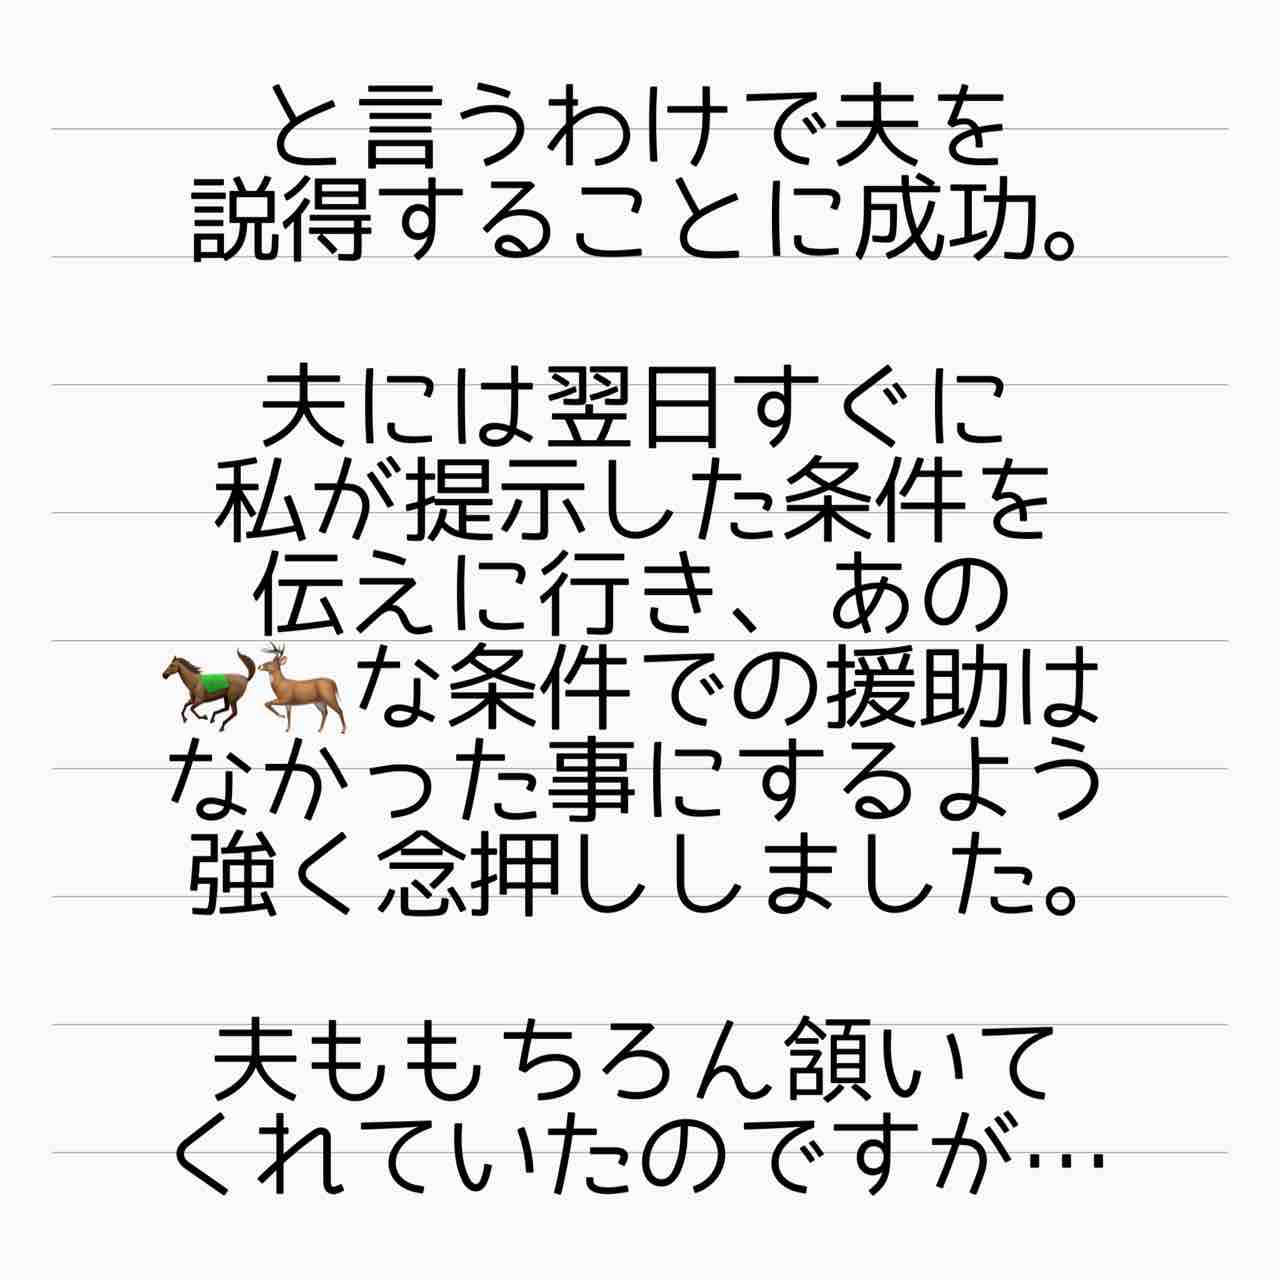 と言うわけで夫を
説得することに成功。
夫には翌日すぐに
私が提示した条件を
伝えに行き、あの
🐎🦌な条件での援助は
なかった事にするよう
強く念押ししました。
夫ももちろん頷いて
くれていたのですが…